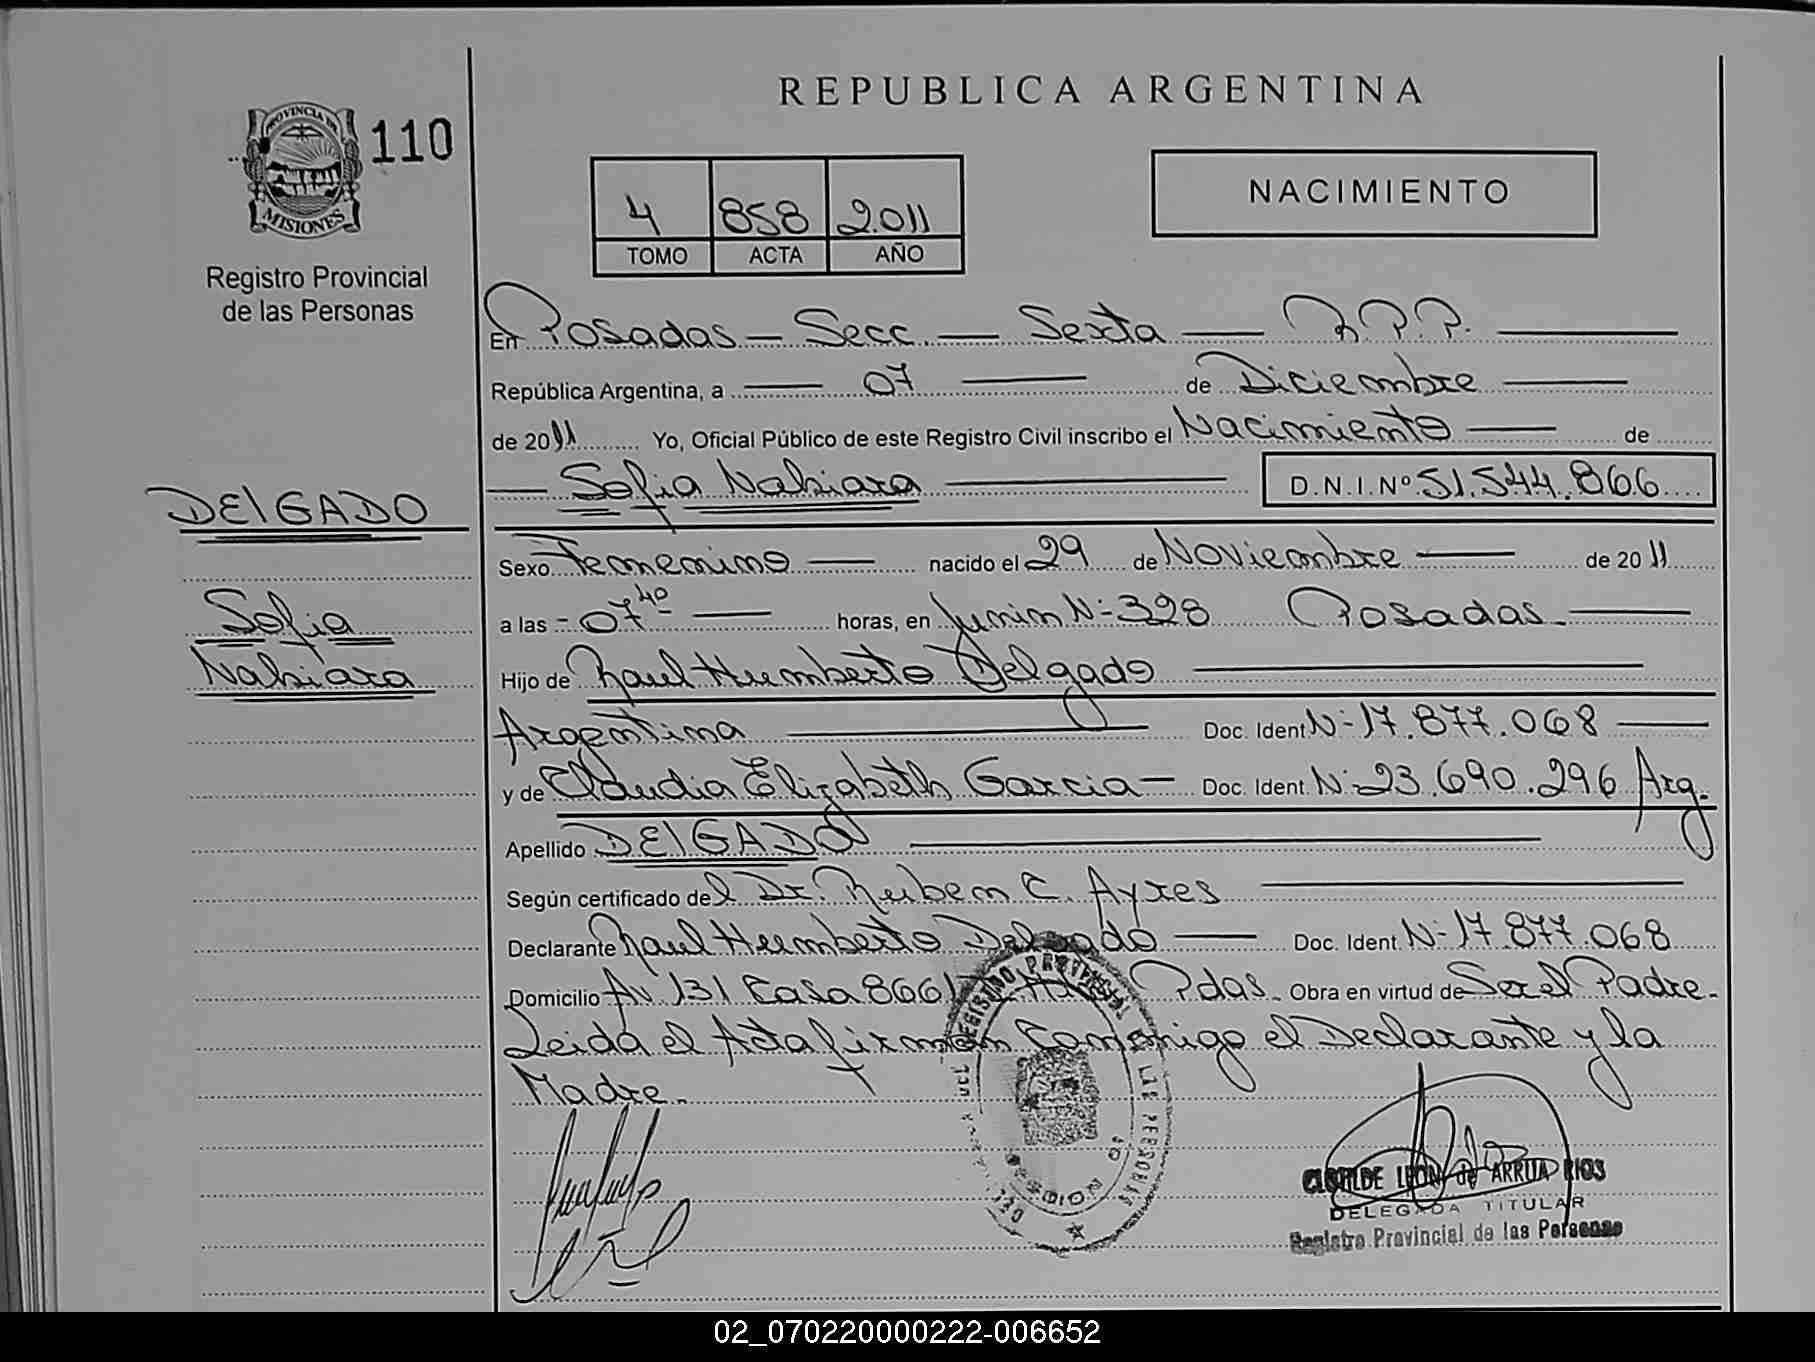 REPUBLICA ARGENTINA
PROVINCIA DE
MISIONES
110
Registro Provincial
de las Personas
4 858 2.011
TOMO ACTA AÑO
NACIMIENTO
En Posadas — Secc. — Sexta — R.P.P. —
República Argentina, a — 07 — de Diciembre —
de 2011 Yo, Oficial Público de este Registro Civil inscribo el Nacimiento — de
— Sofia Nahiara — D.N.I.Nº 51.544.866
DELGADO
Sofia
Nahiara
Sexo Femenino — nacido el 29 de Noviembre — de 2011
a las - 07 40 — horas, en Junin N- 328 Posadas. —
Hijo de Raul Humberto Delgado —
Argentina — Doc. Ident. N- 17.877.068 —
y de Claudia Elizabeth Garcia — Doc. Ident. N- 23.690.296 Arg.
Apellido DElGADO —
Según certificado del Dr. Ruben C. Ayres —
Declarante Raul Humberto Delgado — Doc. Ident. N- 17.877.068
Domicilio Av 131 Casa 866 Pdas. Obra en virtud de Ser el Padre.
Leida el Acta firman Conmigo el Declarante y la
Madre.
REGISTRO PROVINCIAL DE LAS PERSONAS
CLOTILDE LEON de ARRUA RIOS
DELEGADA TITULAR
Registro Provincial de las Personas
02_070220000222-006652